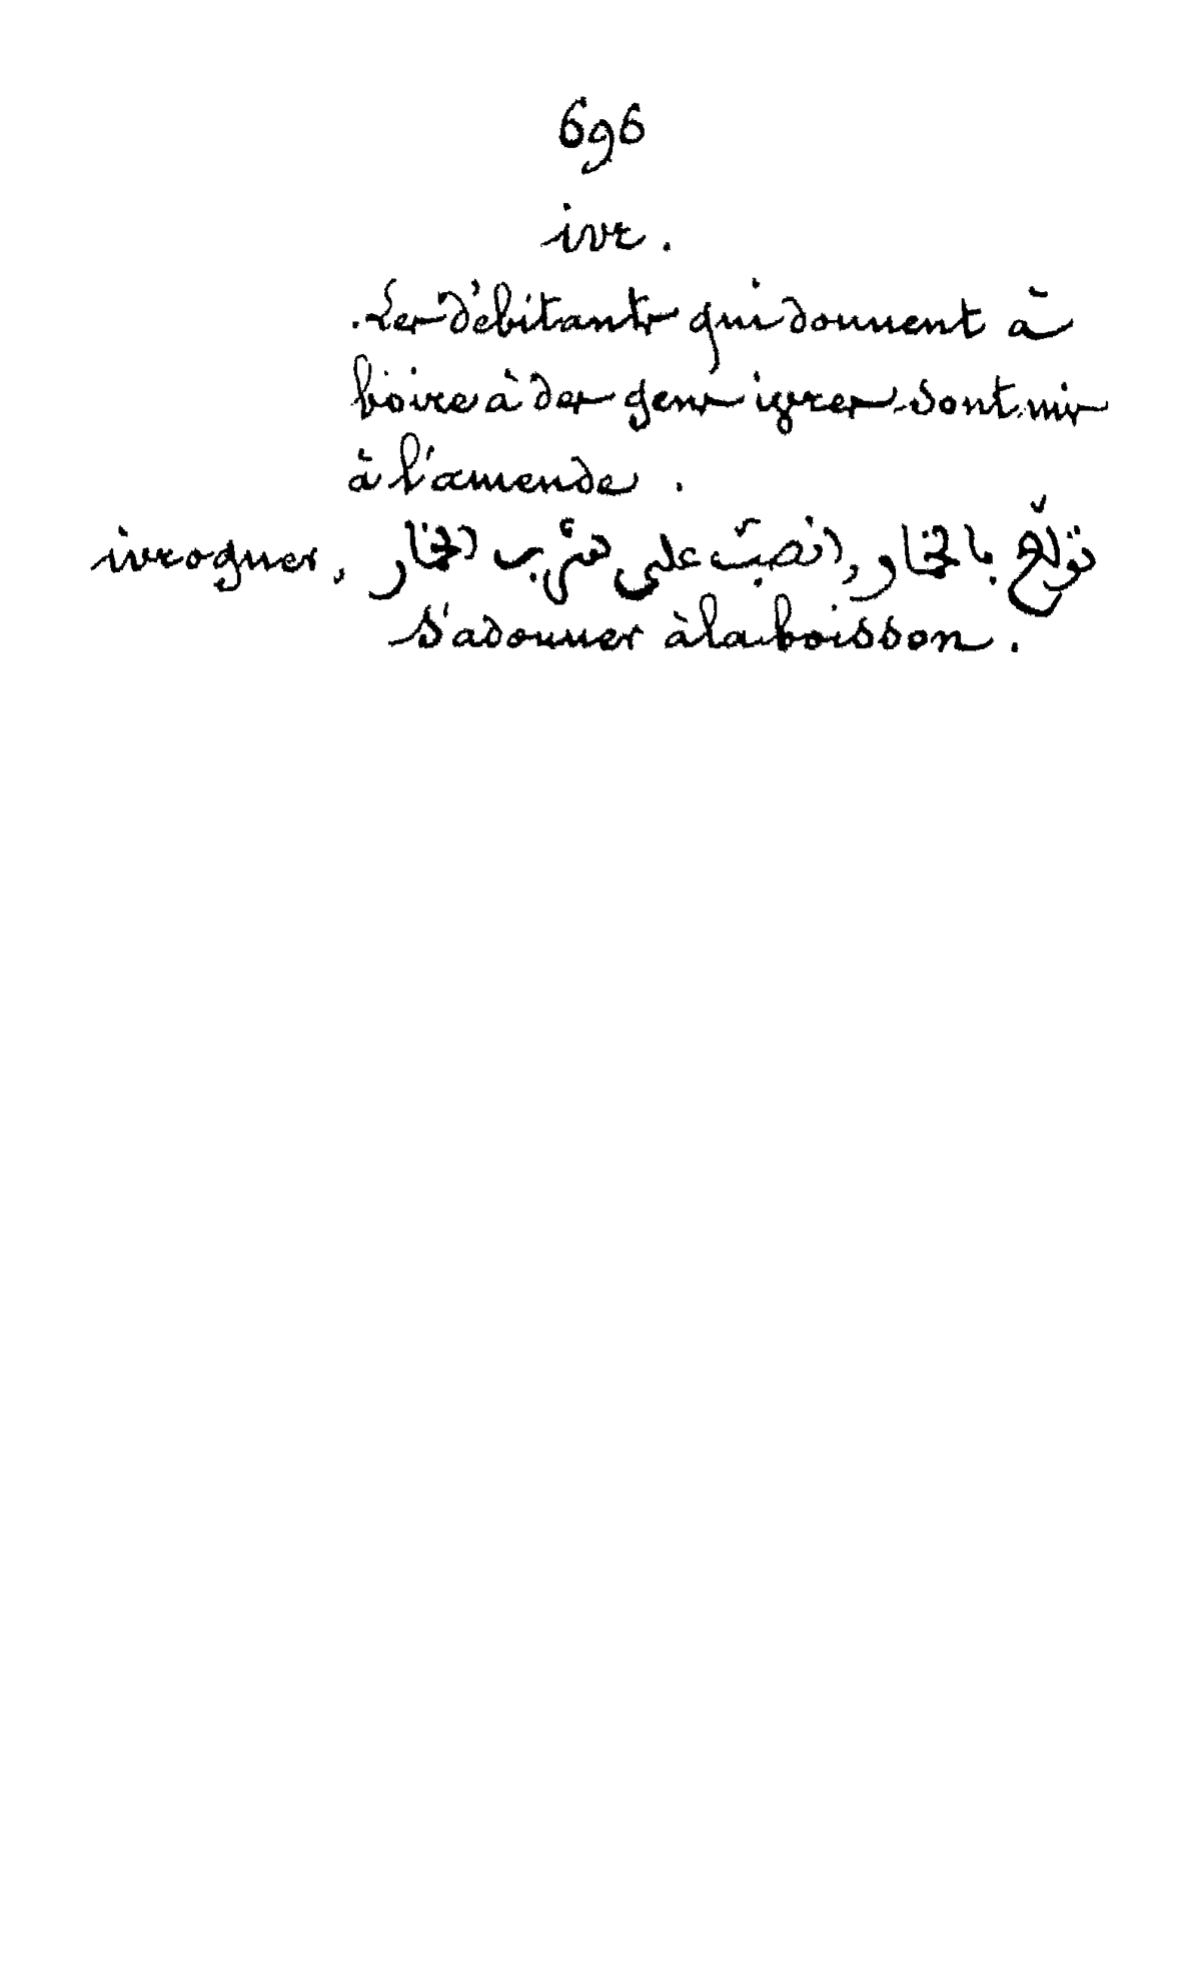 696
ivr.
. Les débitants qui donnent à
boire à des gens ivres sont mis
à l'amende .
ivrogner, تولّع بالخمار, انصبّ على شرب الخمار
s'adonner à la boisson .